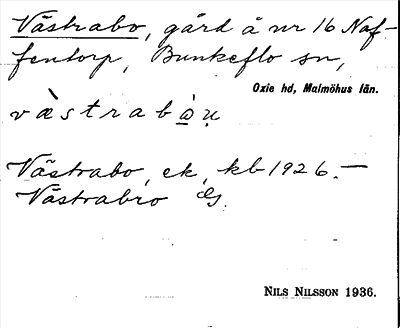 Västrabo, gård å nr 16 Naf-
fentorp, Bunkeflo sn,
Oxie hd, Malmöhus län.
væ̀strabạ̀ụ
Västrabo, ek, kb 1926. —
Västrabro
NILS NILSSON 1936.